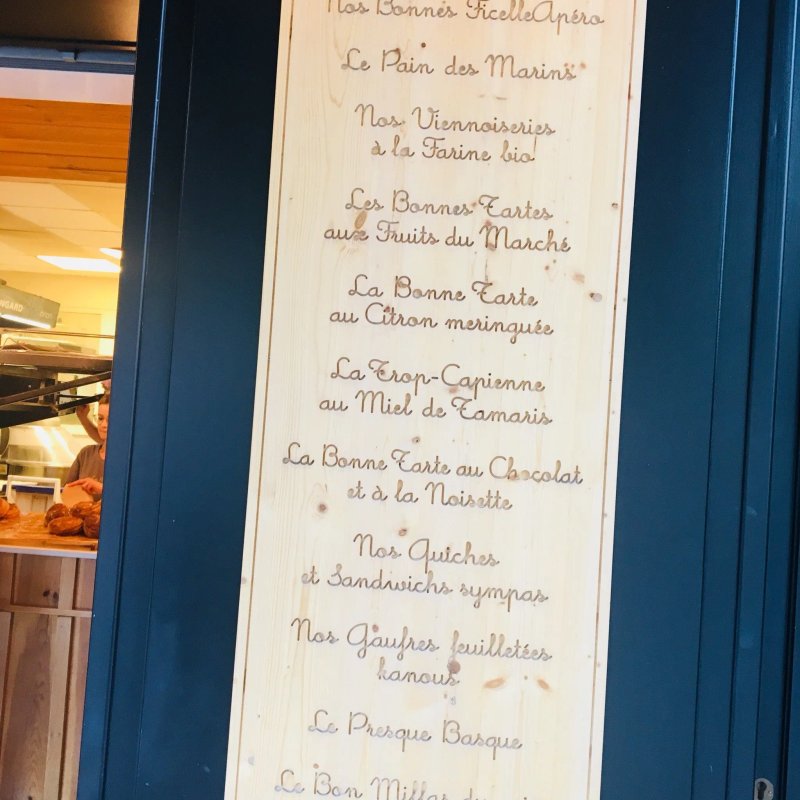 Nos Bonnes Ficelle Apéro
Le Pain des Marins
Nos Viennoiseries
à la Farine bio
Les Bonnes Tartes
aux Fruits du Marché
La Bonne Tarte
au Citron meringuée
La Trop-Capienne
au Miel de Tamaris
La Bonne Tarte au Chocolat
et à la Noisette
Nos Quiches
et Sandwichs sympas
Nos Gaufres feuilletées
kanous
Le Presque Basque
Le Bon Millas